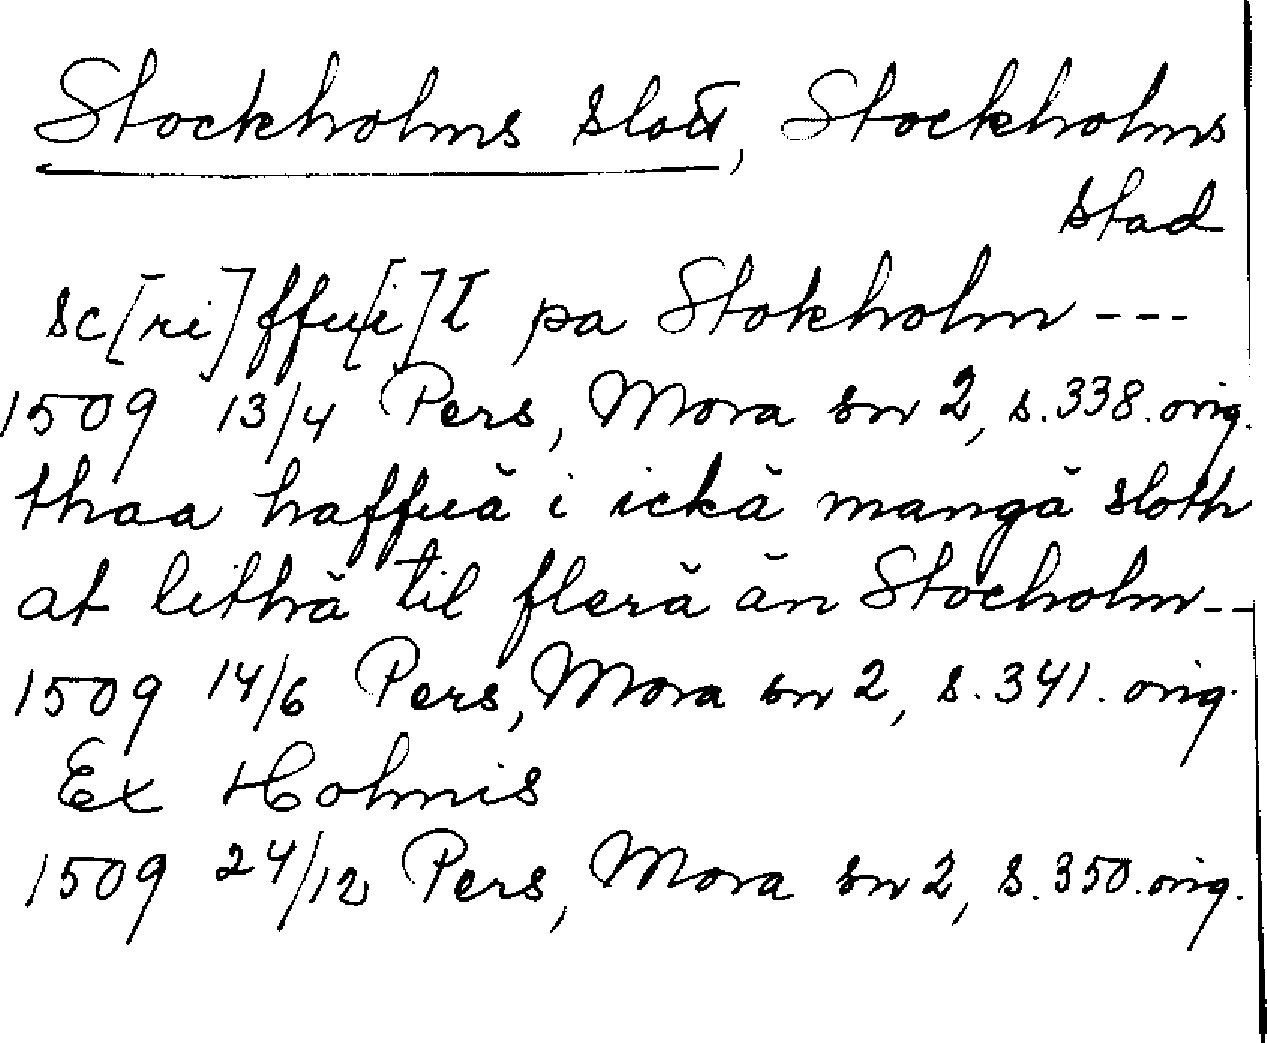 Stockholms slott, Stockholms
stad
sc[ri]ffu[i]t pa Stokholm ---
1509 13/4 Pers, Mora sn 2, s. 338. orig.
thaa haffuä i ickä mangä sloth
at lithä til flerä än Stocholm --
1509 14/6 Pers, Mora sn 2, s. 341. orig.
Ex Holmis
1509 24/12 Pers, Mora sn 2, s. 350. orig.